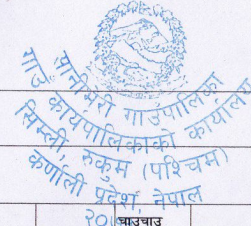 सानीभेरी गाउँपालिका
गाउँ कार्यपालिकाको कार्यालय
सिम्ली, रुकुम (पश्चिम)
कर्णाली प्रदेश, नेपाल
चाउचाउ